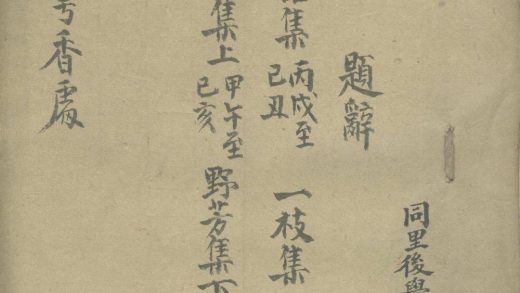 同里後學
題辭
集 丙戌至己丑 一枝集
集上 甲午至己亥 野芳集下
香處